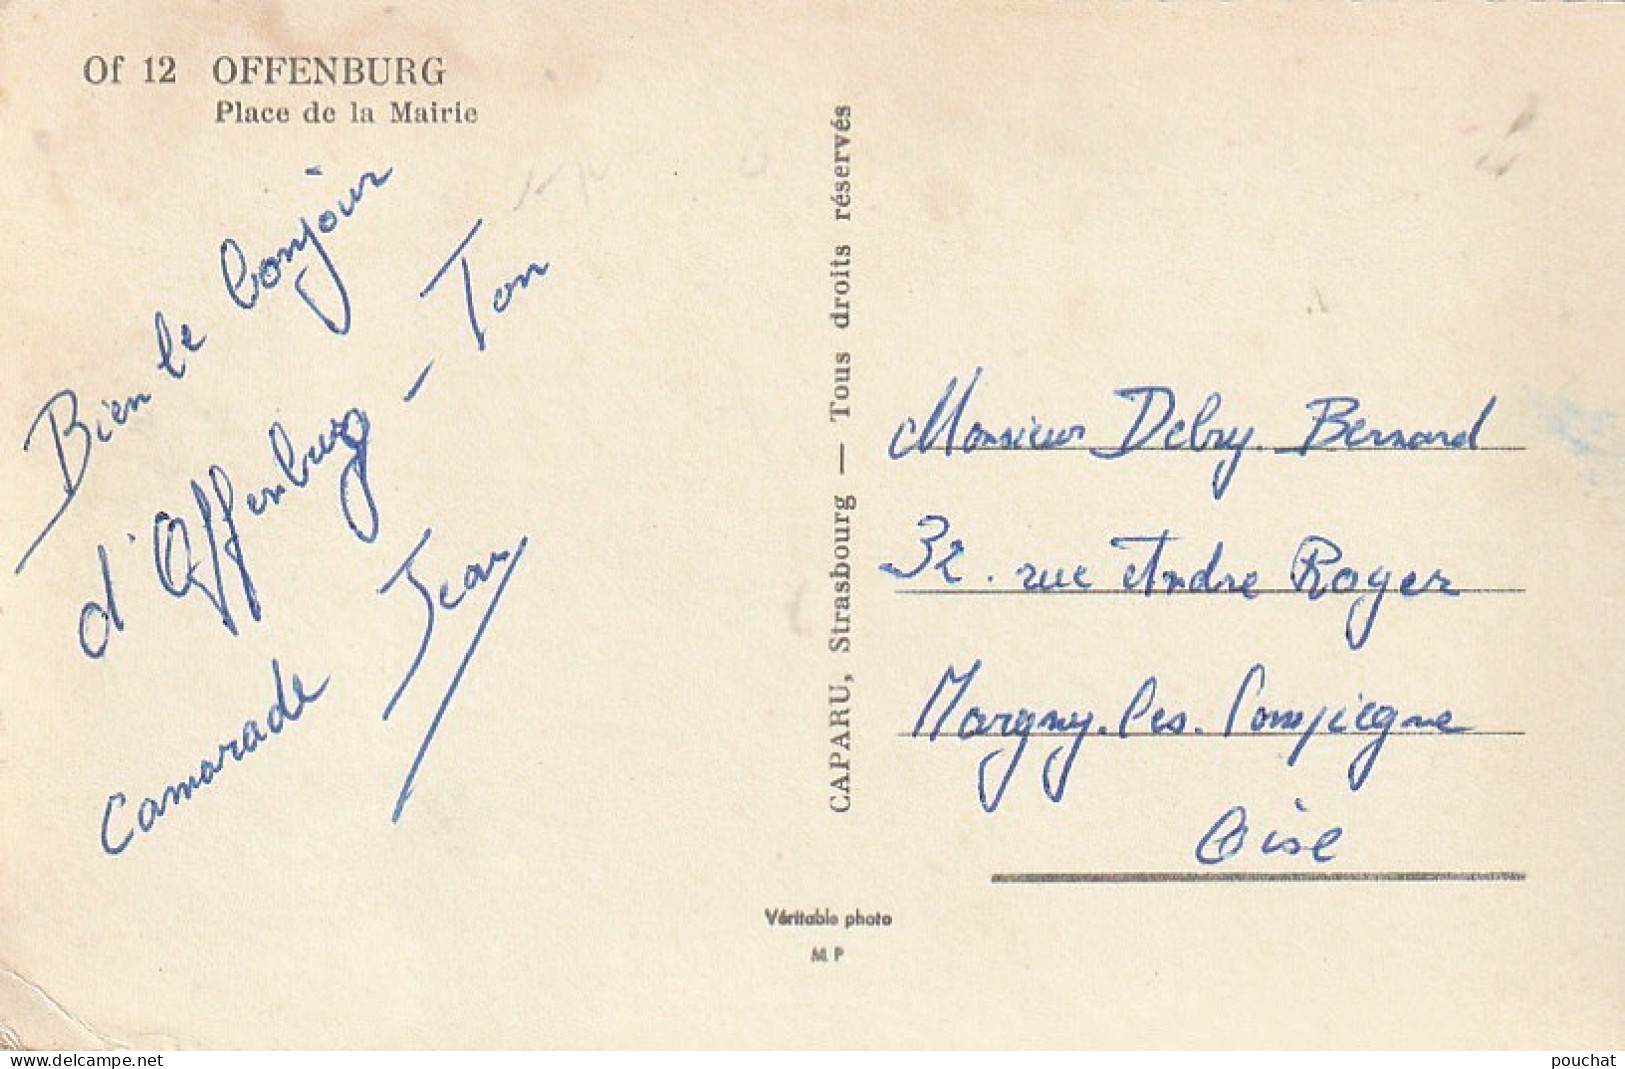 Of 12 OFFENBURG
Place de la Mairie
Bien le bonjour
d'Offenburg - Ton
camarade Jean
CAPARU, Strasbourg — Tous droits réservés
Monsieur Debry. Bernard
32. rue André Roger
Margny. les. Compiegne
Oise
Véritable photo
M P
www.delcampe.net
pouchat